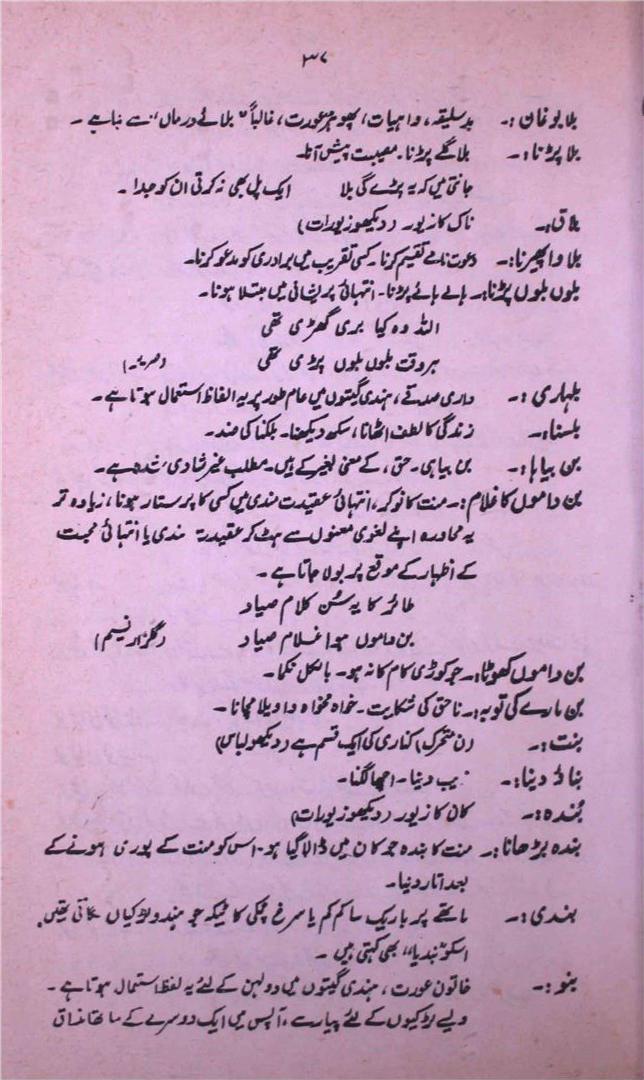 ۳۷
بلا بوغان :۔ بد سلیقہ، واہیات، پھوہڑ عورت، غالباً " بلائے درماں " سے بنا ہے ۔
بلا پڑنا :۔ بلا گلے پڑنا۔ مصیبت پیش آنا۔
جانتی میں کہ یہ پڑے گی بلا ایک پل بھی نہ کرتی ان کو جدا ۔
بلاق :۔ ناک کا زیور (دیکھو زیورات)
بلاوا پھیرنا :۔ دعوت نامے تقسیم کرنا۔ کسی تقریب میں برادری کو مدعو کرنا۔
بلوں بلوں پڑنا :۔ ہائے ہائے پڑنا۔ انتہائی پریشانی میں مبتلا ہونا۔
اللہ وہ کیا بری گھڑی تھی
ہر وقت بلوں بلوں پڑی تھی
بلہاری :۔ واری صدقے، ہندی گیتوں میں عام طور پر یہ الفاظ استعمال ہوتا ہے۔
بلسنا :۔ زندگی کا لطف اٹھانا، سکھ دیکھنا۔ بلکنا کی ضد۔
بن بیاہا :۔ بن بیاہی۔ حق، کے معنی بغیر کے ہیں۔ مطلب غیر شادی شدہ ہے۔
بن داموں کا غلام :۔ منت کا نوکر، انتہائی عقیدت مندی میں کسی کا پرستار ہونا، زیادہ تر
یہ محاورہ اپنے لغوی معنوں سے ہٹ کر عقیدت مندی یا انتہائی محبت
کے اظہار کے موقع پر بولا جاتا ہے ۔
طائر کا یہ سُن کلام صیاد
بن داموں ہوا غلام صیاد (گلزار نسیم)
بن داموں کھوٹا :۔ جو کوڑی کام کا نہ ہو۔ بالکل نکما۔
بن مارے کی توبہ :۔ ناحق کی شکایت۔ خواہ مخواہ واویلا مچانا ۔
بنت :۔ (ن متحرک) کناری کی ایک قسم ہے (دیکھو لباس)
بناؤ دینا :۔ زیب دینا۔ اچھا لگنا۔
بُندہ :۔ کان کا زیور (دیکھو زیورات)
بندہ بڑھانا :۔ منت کا بندہ جو کان میں ڈالا گیا ہو۔ اس کو منت کے پوری ہونے کے
بعد اتار دینا۔
بندی :۔ ماتھے پر باریک سا کم کم یا سرخ ٹکی کا ٹیکہ جو ہندو لڑکیاں لگاتی تھیں۔
اسکو "بندیا" بھی کہتی ہیں ۔
بنو :۔ خاتون عورت، ہندی گیتوں میں دولہن کے لئے یہ لفظ استعمال ہوتا ہے ۔
ویسے لڑکیوں کے لئے پیار سے، آپس میں ایک دوسرے کے ساتھ مذاق